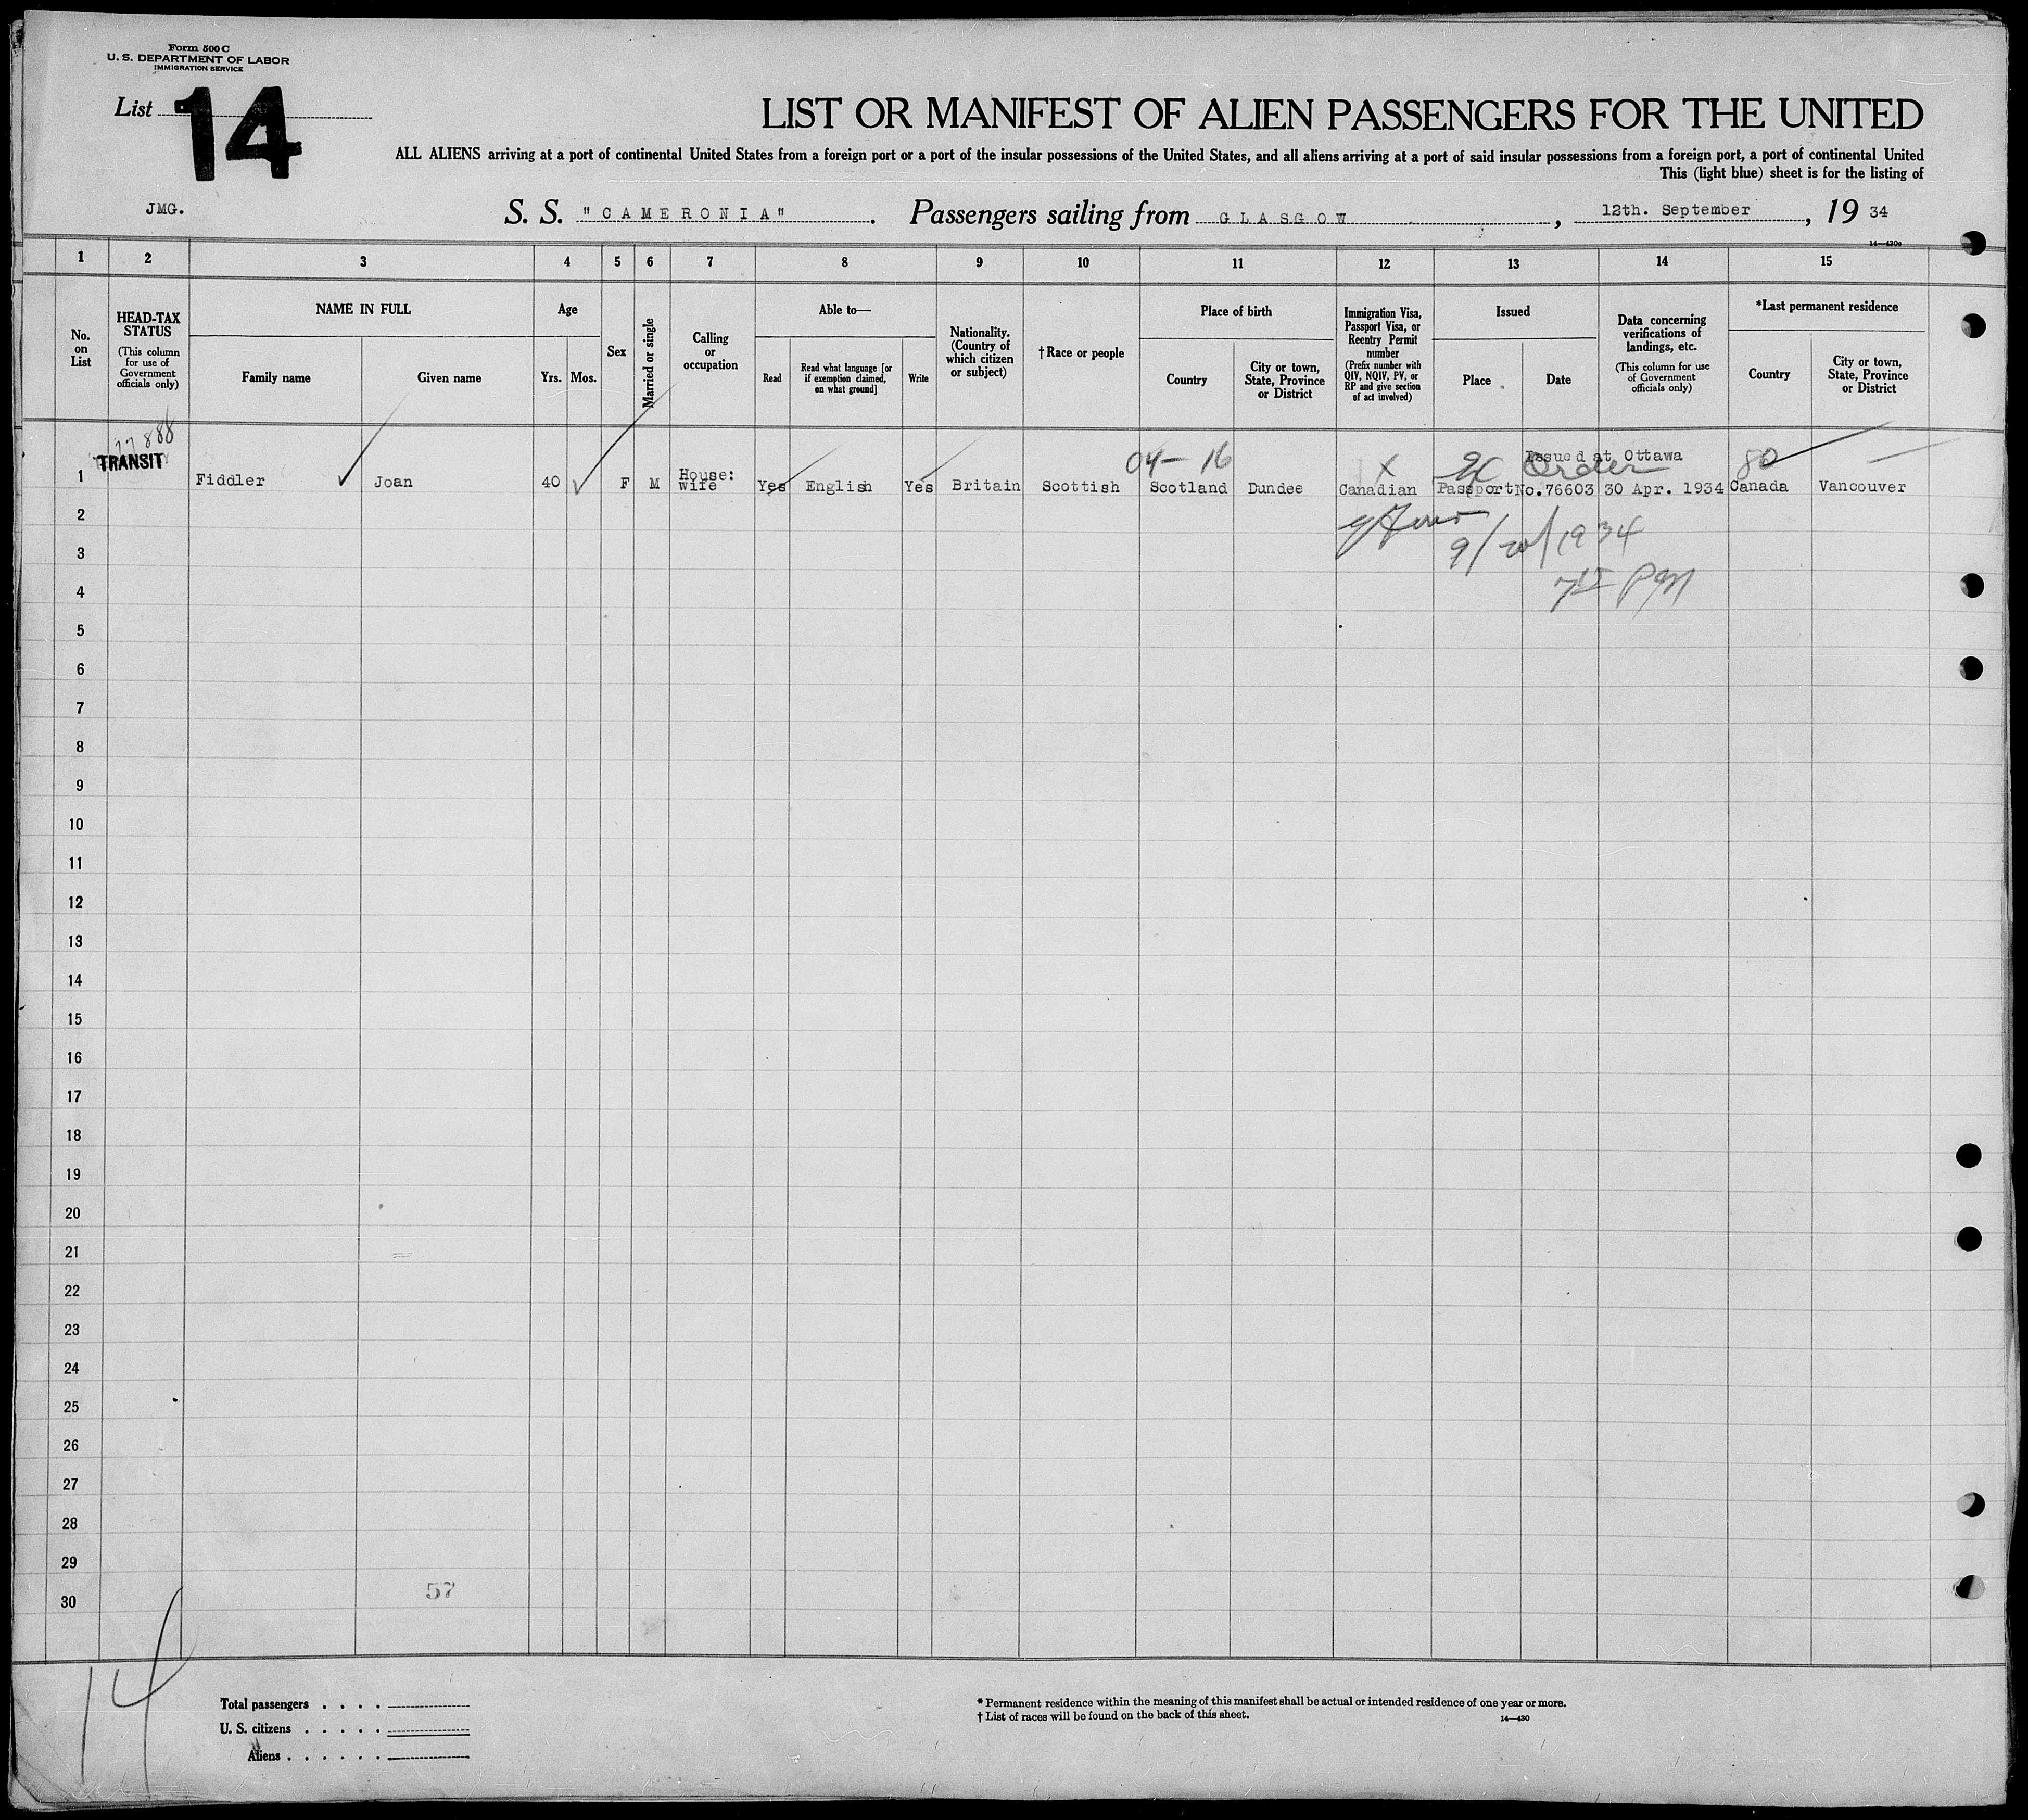 Form 500 C
U. S. DEPARTMENT OF LABOR
IMMIGRATION SERVICE
List 14
LIST OR MANIFEST OF ALIEN PASSENGERS FOR THE UNITED
ALL ALIENS arriving at a port of continental United States from a foreign port or a port of the insular possessions of the United States, and all aliens arriving at a port of said insular possessions from a foreign port, a port of continental United
This (light blue) sheet is for the listing of
JMG. S. S. "CAMERONIA". Passengers sailing from GLASGOW, 12th. September, 19 34
14—430c
1 2 3 4 5 6 7 8 9 10 11 12 13 14 15
No. on List
HEAD-TAX STATUS
(This column for use of Government officials only)
NAME IN FULL
Family name
Given name
Age
Yrs. Mos.
Sex
Married or single
Calling or occupation
Able to—
Read
Read what language [or if exemption claimed, on what ground]
Write
Nationality. (Country of which citizen or subject)
†Race or people
Place of birth
Country
City or town, State, Province or District
Immigration Visa, Passport Visa, or Reentry Permit number
(Prefix number with QIV, NQIV, PV, or RP and give section of act involved)
Issued
Place
Date
Data concerning verifications of landings, etc.
(This column for use of Government officials only)
*Last permanent residence
Country
City or town, State, Province or District
888
TRANSIT
04— 16
X
Order
Issued at Ottawa
80
1 Fiddler Joan 40 F M House: wife Yes English Yes Britain Scottish Scotland Dundee Canadian Passport No. 76603 30 Apr. 1934 Canada Vancouver
2
9/20/1934
3
PM
4
5
6
7
8
9
10
11
12
13
14
15
16
17
18
19
20
21
22
23
24
25
26
27
28
29
30
57
14
Total passengers . . . .
U. S. citizens . . . . .
Aliens . . . . . .
* Permanent residence within the meaning of this manifest shall be actual or intended residence of one year or more.
† List of races will be found on the back of this sheet.
14—430